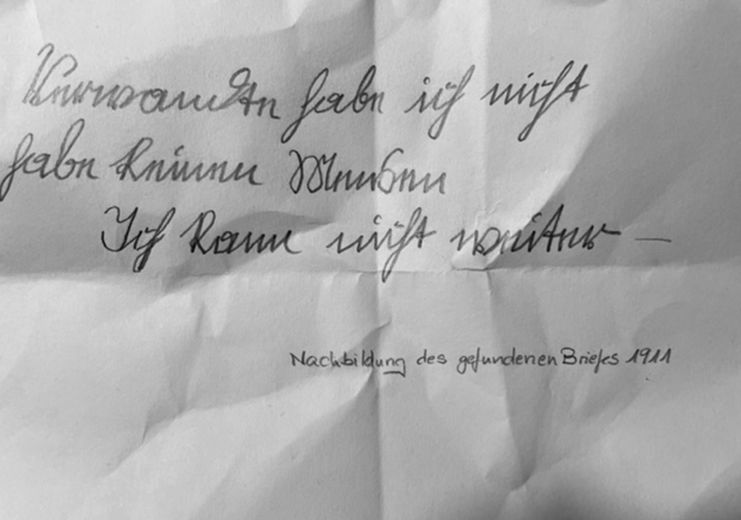 Verwandte habe ich nicht
habe keinen Menschen
Ich kann nicht weiter —
Nachbildung des gefundenen Briefes 1911